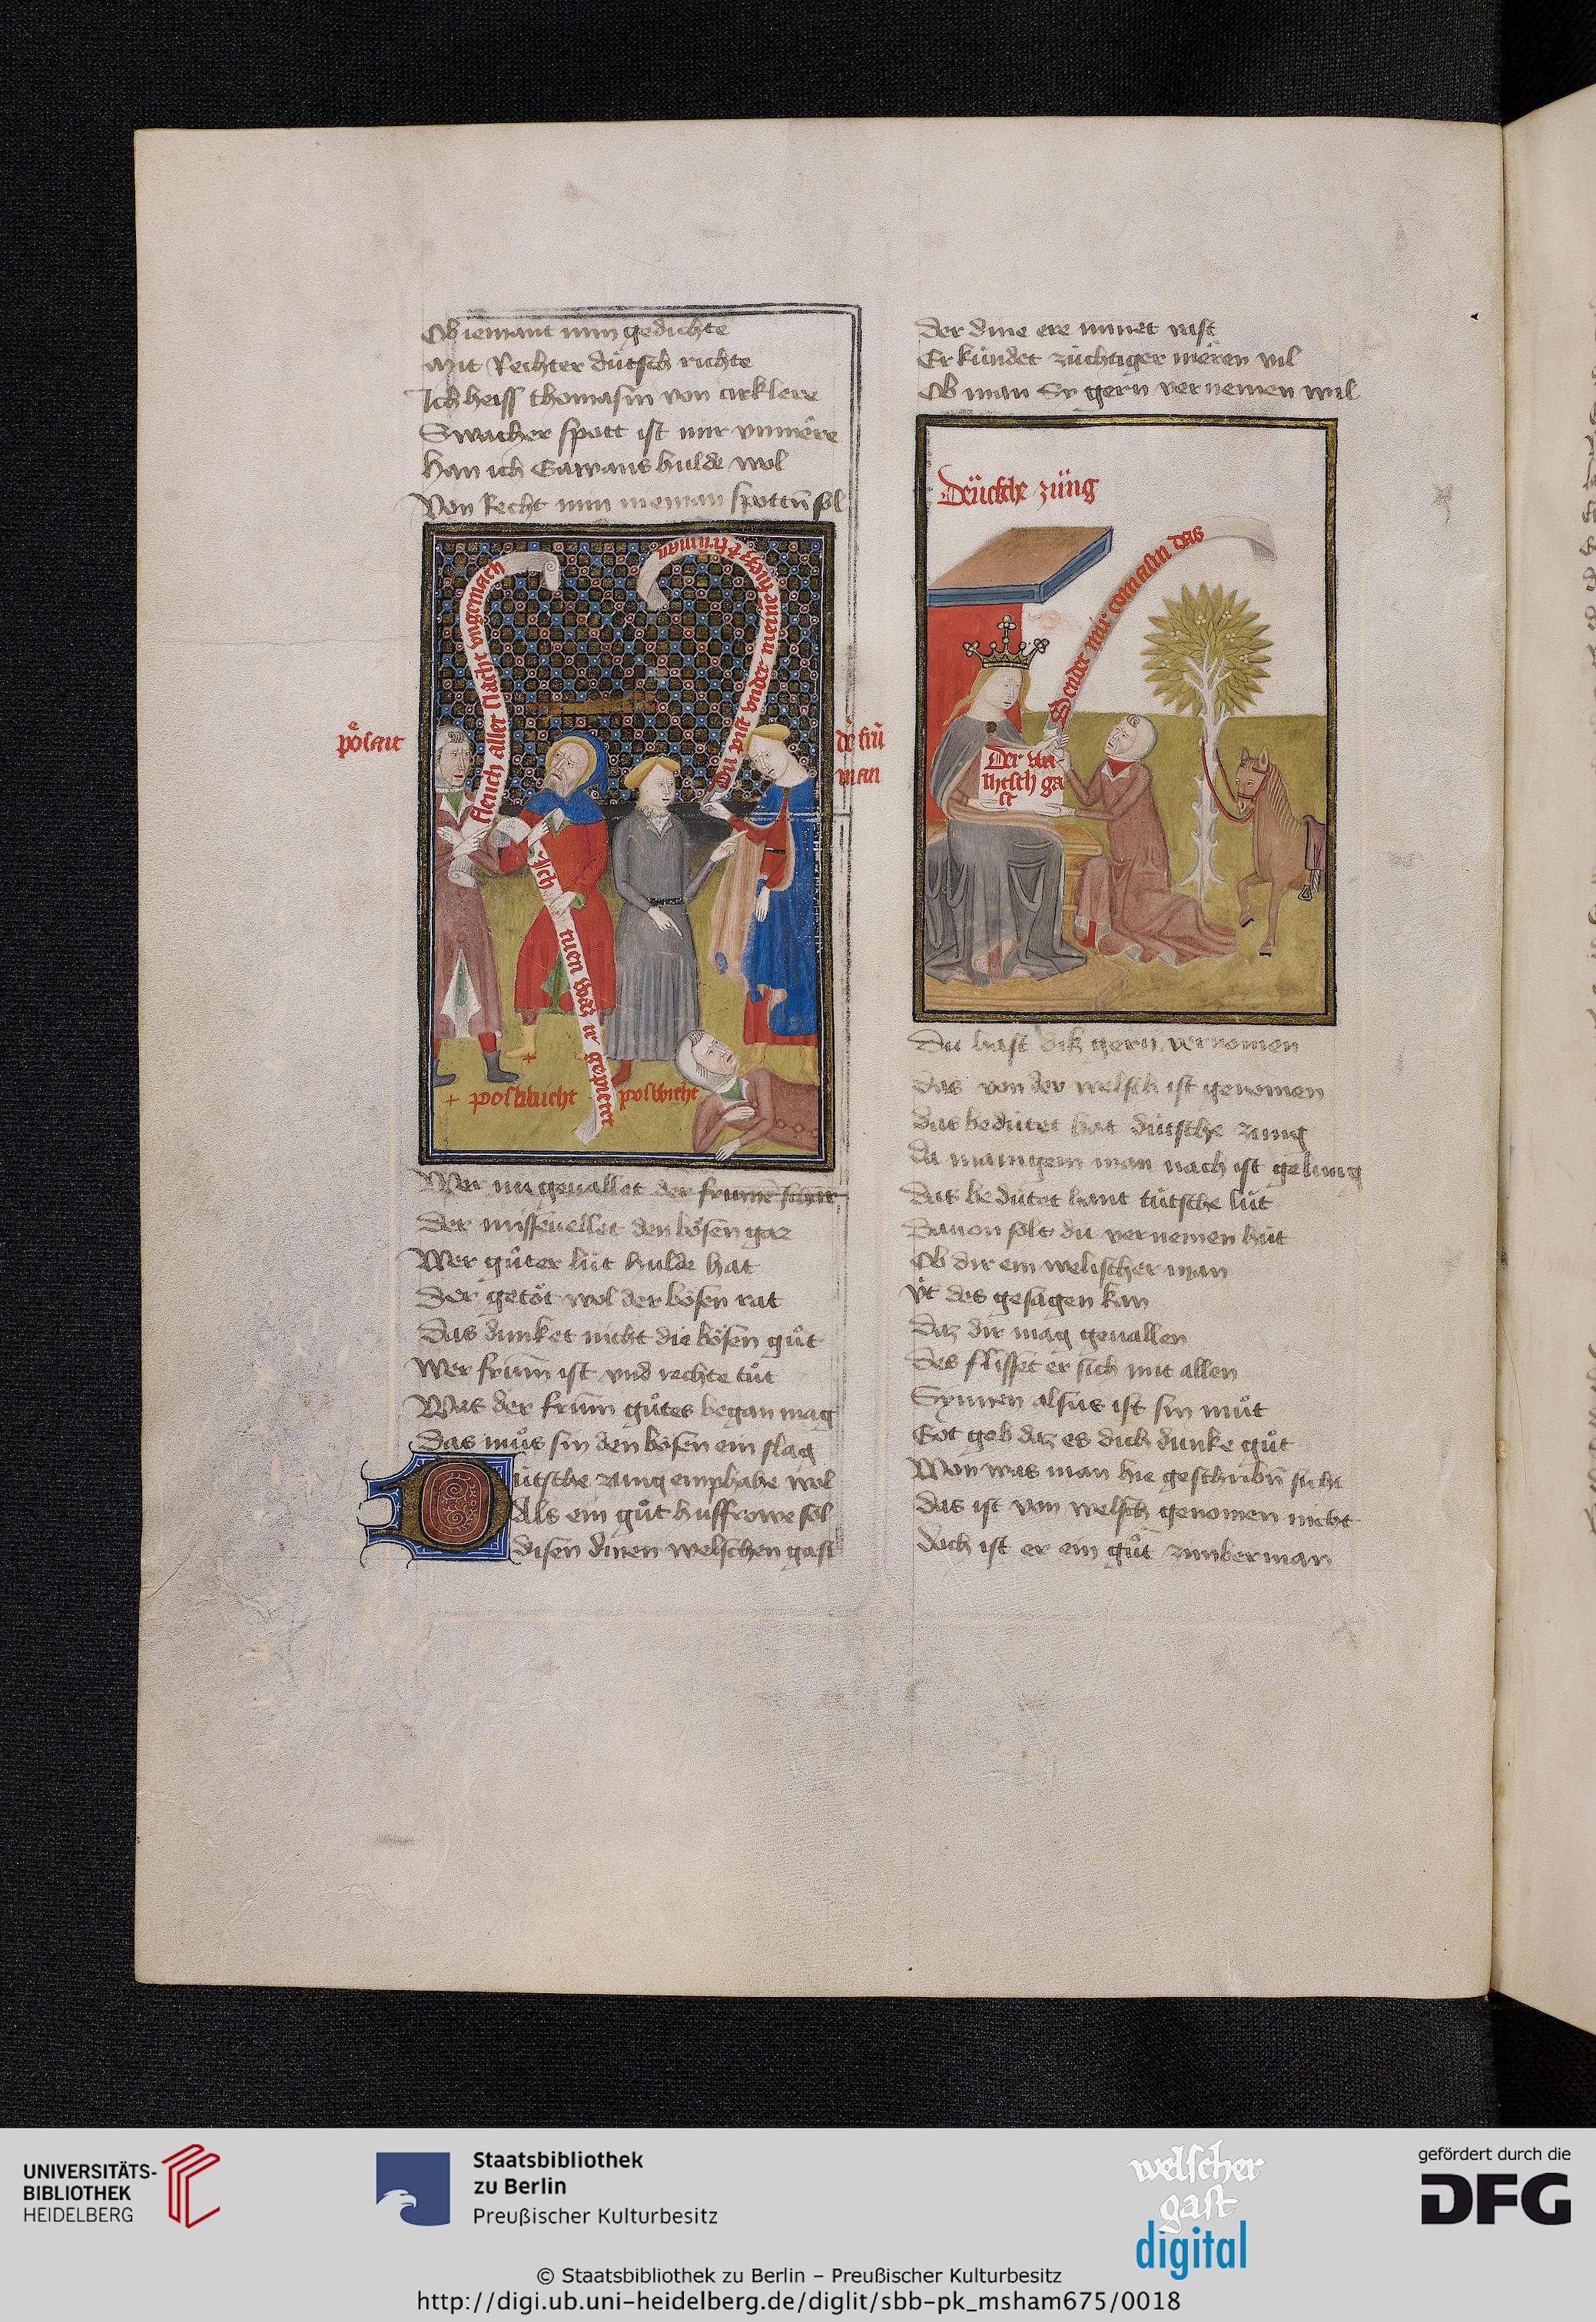 Ob iemant mim gedichte
Mit Rechter dütsch richte
Ich heiss thomasin von cirklere
Swacher spott ist mir vnmere
Han ich Gawans hulde wol
Von Recht min nieman spotten sol
fleuch aller slacht vngemach
Du pist vnder meine
Ich tuen waz ir gepietet
de frū
man
+
+ poswicht
poswicht
Wer nu geuallet der frumen schar
Der missevellet den bösen gar
Wer guter lüt hulde hat
Der getöt wol der bösen rat
Das dunket nicht die bösen gůt
Wer frum ist vnd rechte tůt
Was der frum gůtes began mag
Das můs sin den bösen ein slag
Dütsche zung emphahe wol
Als ein gůt husfrowe sol
disen dinen welschen gast
Der dine ere minet vast
Er kündet züchtiger meren vil
Ob man Sy gern vernemen wil
zúng
Sendet mir tomasin das
Der wa
lhisch ga
st
Du hast dik gern vernomen
Das von der welsch ist genomen
Das bedütet hat dütsche zung
Da manigem man nach ist gelung
Das bedütet hant tütsche lüt
Dauon solt du vernemen hüt
Ob dir ein welischer man
üt des gesagen kan
Daz dir mag geuallen
Des flisset er sich mit allen
Synnen alsus ist sin můt
Got geb daz es dich dunke gůt
Won was man hie geschribn sicht
Das ist von welsch genomen nicht
Doch ist er ein gůt zimberman
UNIVERSITÄTS-
BIBLIOTHEK
HEIDELBERG
Staatsbibliothek
zu Berlin
Preußischer Kulturbesitz
welscher
gast
digital
gefördert durch die
DFG
© Staatsbibliothek zu Berlin – Preußischer Kulturbesitz
http://digi.ub.uni-heidelberg.de/diglit/sbb-pk_msham675/0018